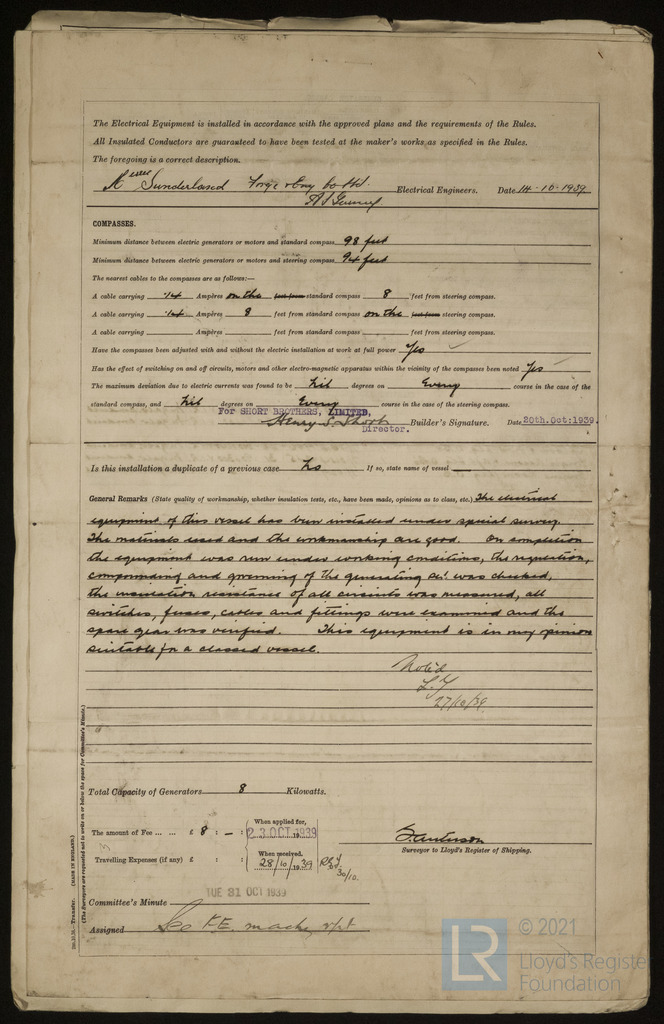 The Electrical Equipment is installed in accordance with the approved plans and the requirements of the Rules.
All Insulated Conductors are guaranteed to have been tested at the maker's works as specified in the Rules.
The foregoing is a correct description.
Sunderland Forge & Eng Co Ltd. Electrical Engineers. Date 14·10·1939
COMPASSES.
Minimum distance between electric generators or motors and standard compass 98 feet
Minimum distance between electric generators or motors and steering compass 94 feet
The nearest cables to the compasses are as follows:—
A cable carrying ·14 Ampères on the feet from standard compass 8 feet from steering compass.
A cable carrying ·14 Ampères 8 feet from standard compass on the feet from steering compass.
A cable carrying Ampères feet from standard compass feet from steering compass.
Have the compasses been adjusted with and without the electric installation at work at full power Yes
Has the effect of switching on and off circuits, motors and other electro-magnetic apparatus within the vicinity of the compasses been noted Yes
The maximum deviation due to electric currents was found to be Nil degrees on Every course in the case of the
standard compass, and Nil degrees on Every course in the case of the steering compass.
For SHORT BROTHERS, LIMITED,
Henry S. Short Builder's Signature. Date 20th.Oct:1939.
Director.
Is this installation a duplicate of a previous case No If so, state name of vessel —
General Remarks (State quality of workmanship, whether insulation tests, etc., have been made, opinions as to class, etc.) The electrical
equipment of this vessel has been installed under special survey.
The materials used and the workmanship are good. On completion
the equipment was run under working conditions, the regulation,
compounding and governing of the generating set was checked,
the insulation resistance of all circuits was measured, all
switches, fuses, cables and fittings were examined and the
spare gear was verified. This equipment is in my opinion
suitable for a classed vessel.
Noted
27/10/39
Total Capacity of Generators 8 Kilowatts.
The amount of Fee ... ... £ 8 : – : When applied for, 23 OCT 1939
Surveyor to Lloyd's Register of Shipping.
Travelling Expenses (if any) £ : : When received, 28/10/1939 30/10.
TUE 31 OCT 1939
Committee's Minute
Assigned See F.E. machy rpt
(The Surveyors are requested not to write on or below the space for Committee's Minute.)
Transfer. (MADE IN ENGLAND.)
LR
© 2021
Lloyd's Register
Foundation